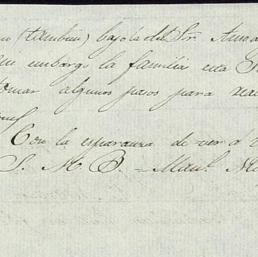 (tambien) bajo la del Sr.
embargo la familia esta
tomar algunos pasos para
Con la esperanza de ver á
S. M. B. - Manl.